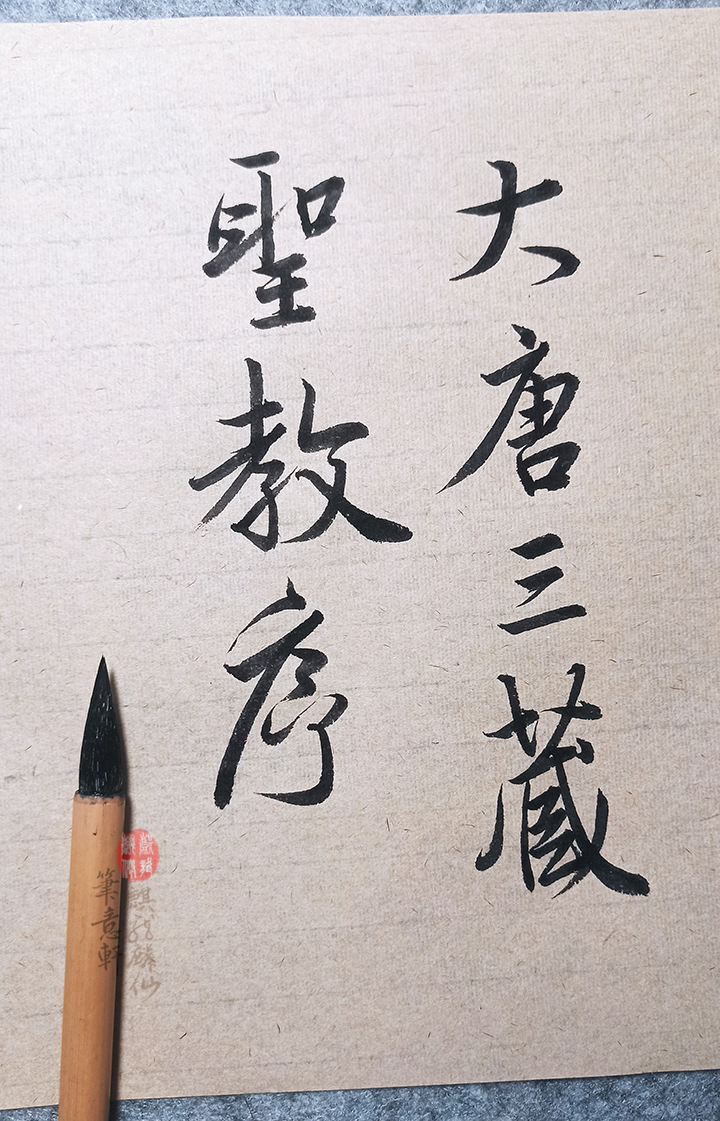 大唐三藏
聖教序
筆意軒